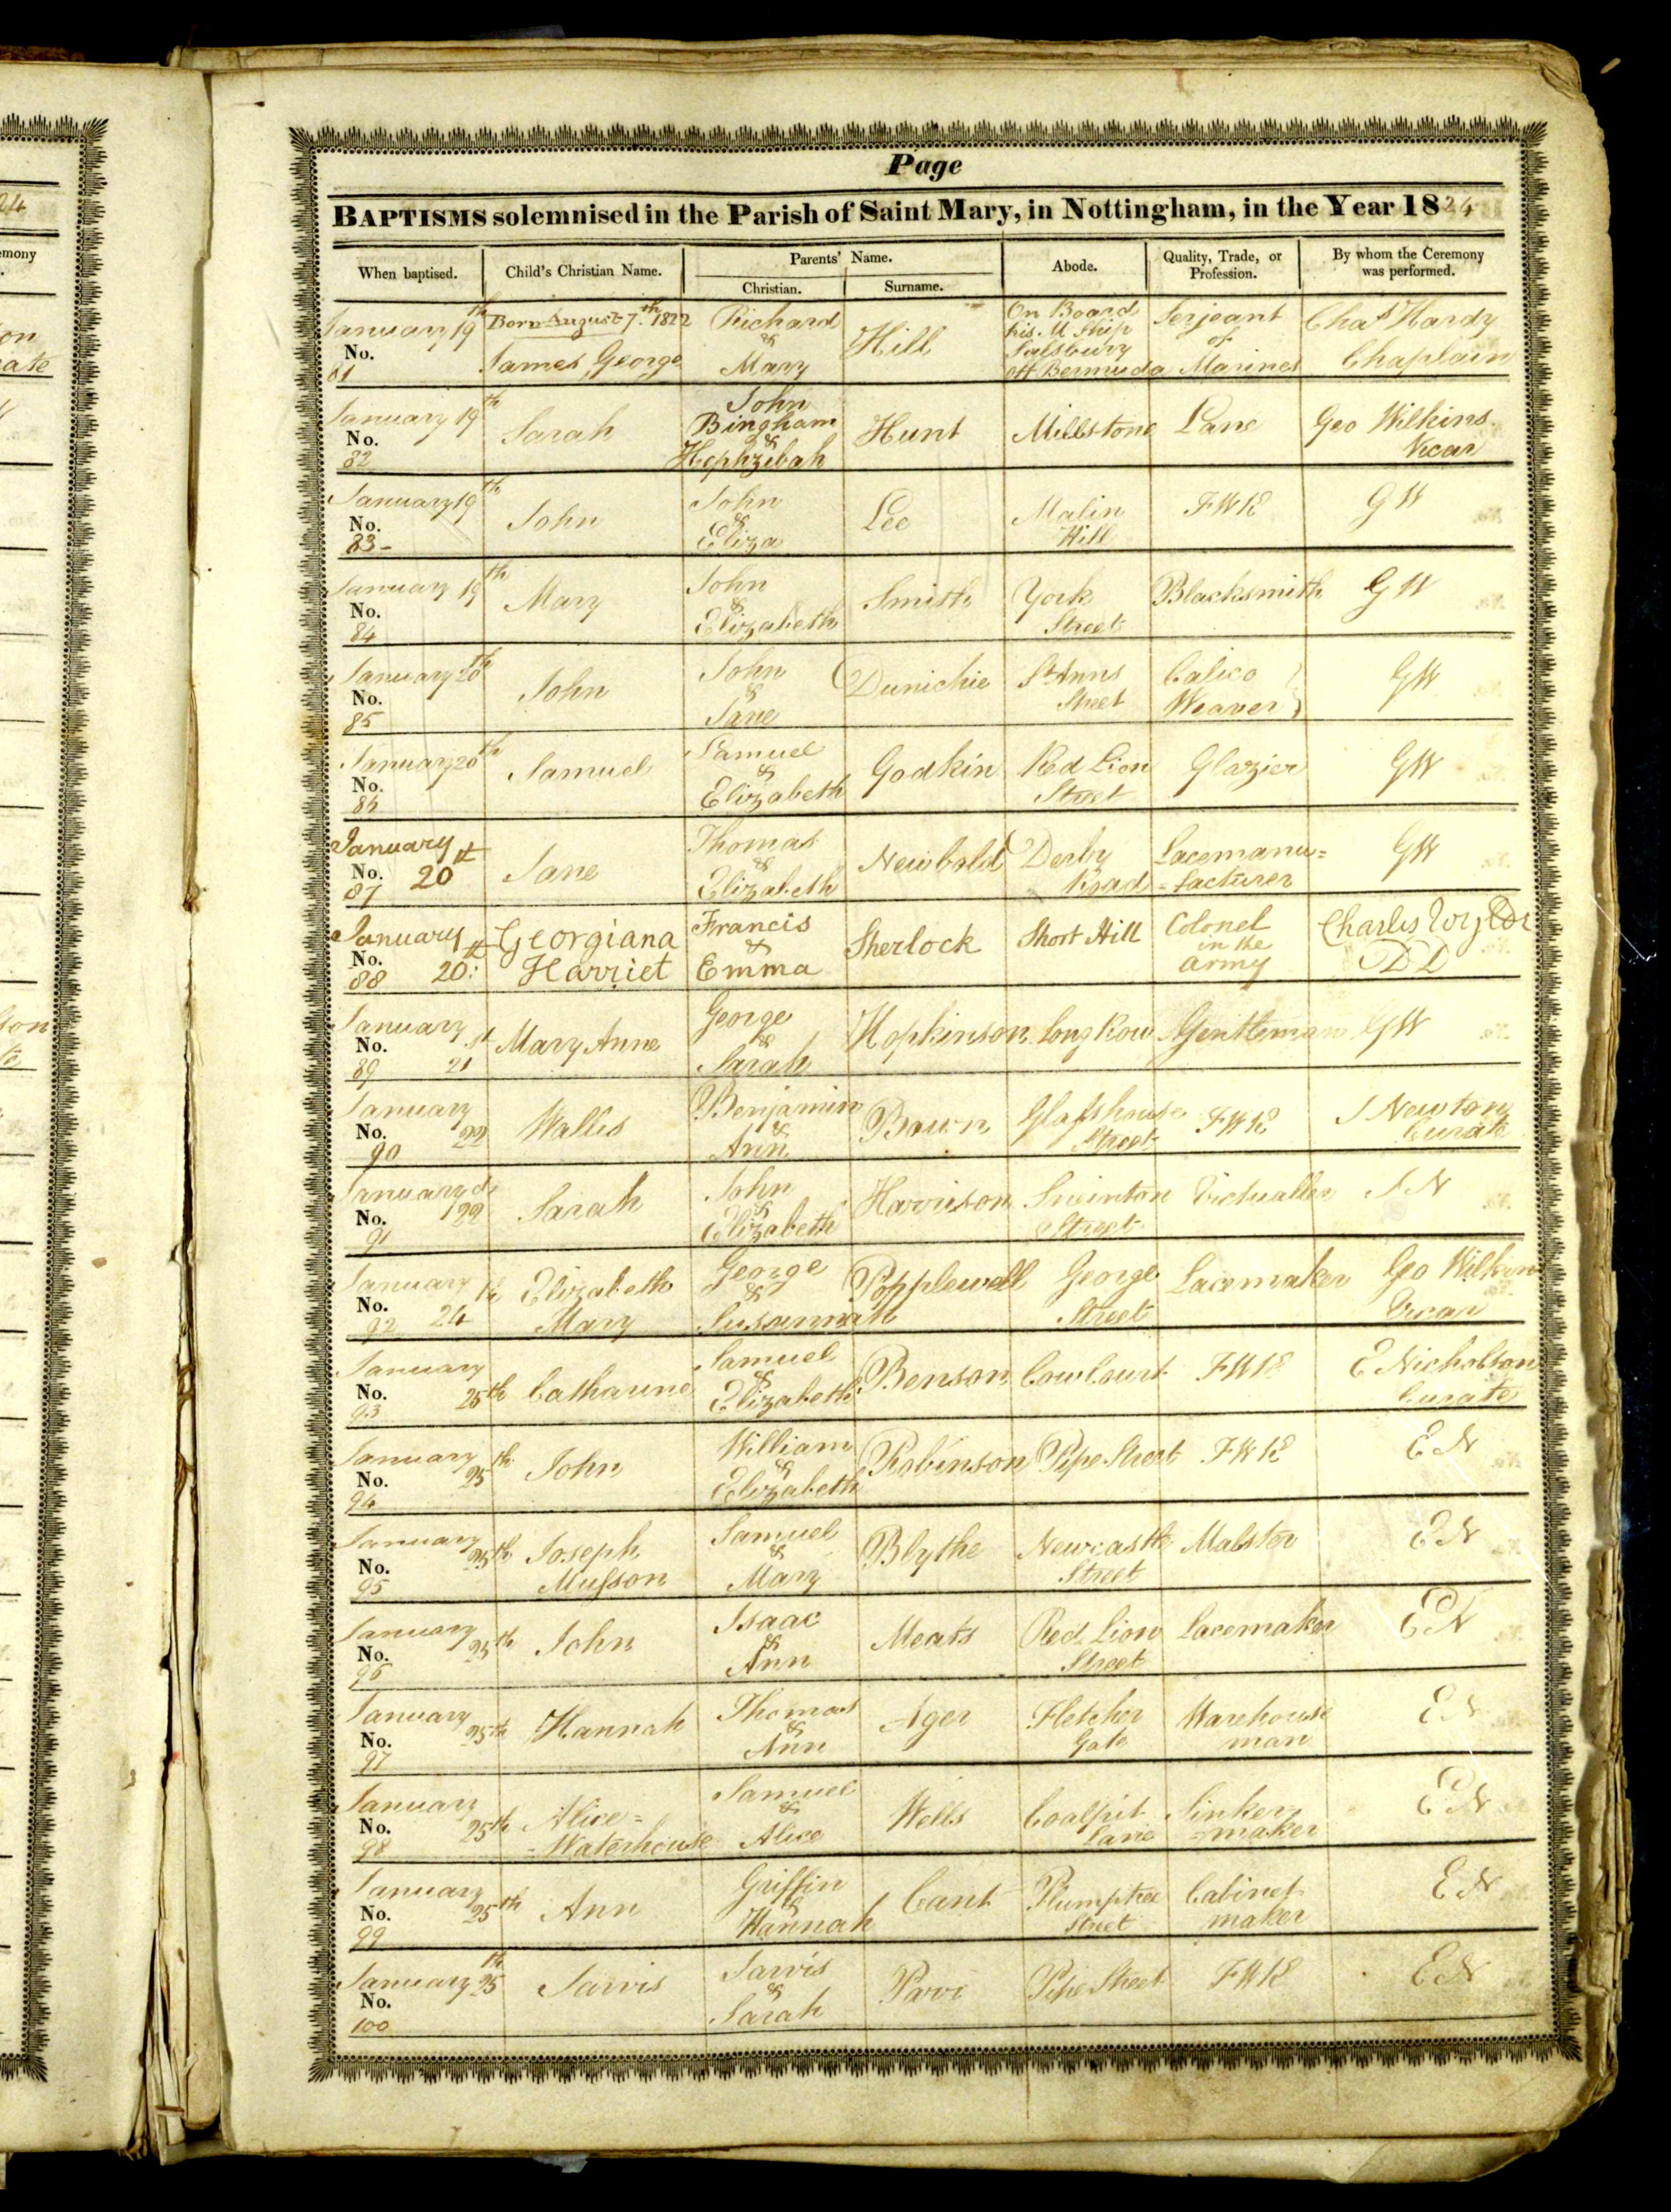 Page
BAPTISMS solemnised in the Parish of Saint Mary, in Nottingham, in the Year 1824
When baptised. Child's Christian Name. Parents' Name. Abode. Quality, Trade, or Profession. By whom the Ceremony was performed.
Christian. Surname.
January 19th No. 81 Born August 7th 1822 James George Richard & Mary Hill On Board his M Ship Salsbury off Bermuda Serjeant of Marines Chas Hardy Chaplain
January 19th No. 82 Sarah John Bingham & Hephzibah Hunt Millstone Lane Geo Wilkins Vicar
January 19th No. 83 John John & Eliza Lee Malin Hill FWK GW
January 19th No. 84 Mary John & Elizabeth Smith York Street Blacksmith GW
January 20th No. 85 John John & Jane Dunichie St Anns Street Calico Weaver GW
January 20th No. 86 Samuel Samuel & Elizabeth Godkin Red Lion Street Glazier GW
January 20th No. 87 Jane Thomas & Elizabeth Newbold Derby Road Lacemanu=facturer GW
January 20th No. 88 Georgiana Harriet Francis & Emma Sherlock Short Hill Colonel in the army Charles Wylde DD
January 21st No. 89 Mary Anne George & Sarah Hopkinson Long Row Gentleman GW
January 22 No. 90 Wallis Benjamin & Ann Bown Glasshouse Street FWK J Newton Curate
January No. 91 Sarah John & Elizabeth Harrison Swinton Street Victualler JN
January 24th No. 92 Elizabeth Mary George & Susannah Popplewell George Street Lacemaker Geo Wilkins Vicar
January 25th No. 93 Catharine Samuel & Elizabeth Benson Cow Court FWK E Nicholson Curate
January 25th No. 94 John William & Elizabeth Robinson Pipe Street FWK EN
January 25th No. 95 Joseph Musson Samuel & Mary Blythe Newcastle Street Malster EN
January 25th No. 96 John Isaac & Ann Meats Red Lion Street Lacemaker EN
January 25th No. 97 Hannah Thomas & Ann Ager Fletcher Gate Warehouse man EN
January 25th No. 98 Alice=Waterhouse Samuel & Alice Wells Coalpit Lane Sinker=maker EN
January 25th No. 99 Ann Griffin & Hannah Cant Plumptree Street Cabinet maker EN
January 25th No. 100 Jarvis Jarvis & Sarah Parr Pipe Street FWK EN